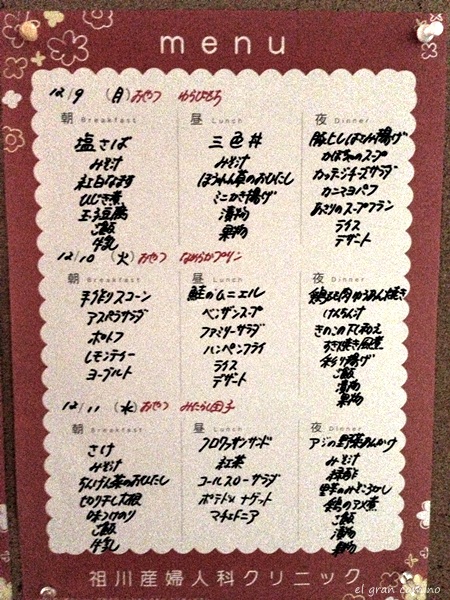 menu
12/9 (月) おやつ わらびもち
朝 Breakfast
塩さば
みそ汁
紅白なます
ひじき煮
玉子豆腐
ご飯
牛乳
昼 Lunch
三色丼
みそ汁
ほうれん草のおひたし
ミニかき揚げ
漬物
果物
夜 Dinner
豚上しそはさみ揚げ
かぼちゃのスープ
カッテージチーズサラダ
カニマヨパフ
あさりのスープフラン
ライス
デザート
12/10 (火) おやつ なめらかプリン
朝 Breakfast
手作りスコーン
アスパラサラダ
ポトフ
レモンティー
ヨーグルト
昼 Lunch
鮭のムニエル
ベンザンスープ
ファミリーサラダ
ハンペンフライ
ライス
デザート
夜 Dinner
鶏もも肉ゆうあん焼き
けんちん汁
きのこの下し和え
すき焼き風煮
彩り揚げ
ご飯
漬物
果物
12/11 (水) おやつ みたらし団子
朝 Breakfast
さけ
みそ汁
ちんげん菜のおひたし
ピリ辛干し大根
味つけのり
ご飯
牛乳
昼 Lunch
クロワッサンサンド
紅茶
コールスローサラダ
ポテト&ナゲット
マチェドニア
夜 Dinner
アジの野菜あんかけ
みそ汁
緑酢
ご飯
漬物
果物
祖川産婦人科クリニック
el gran camino